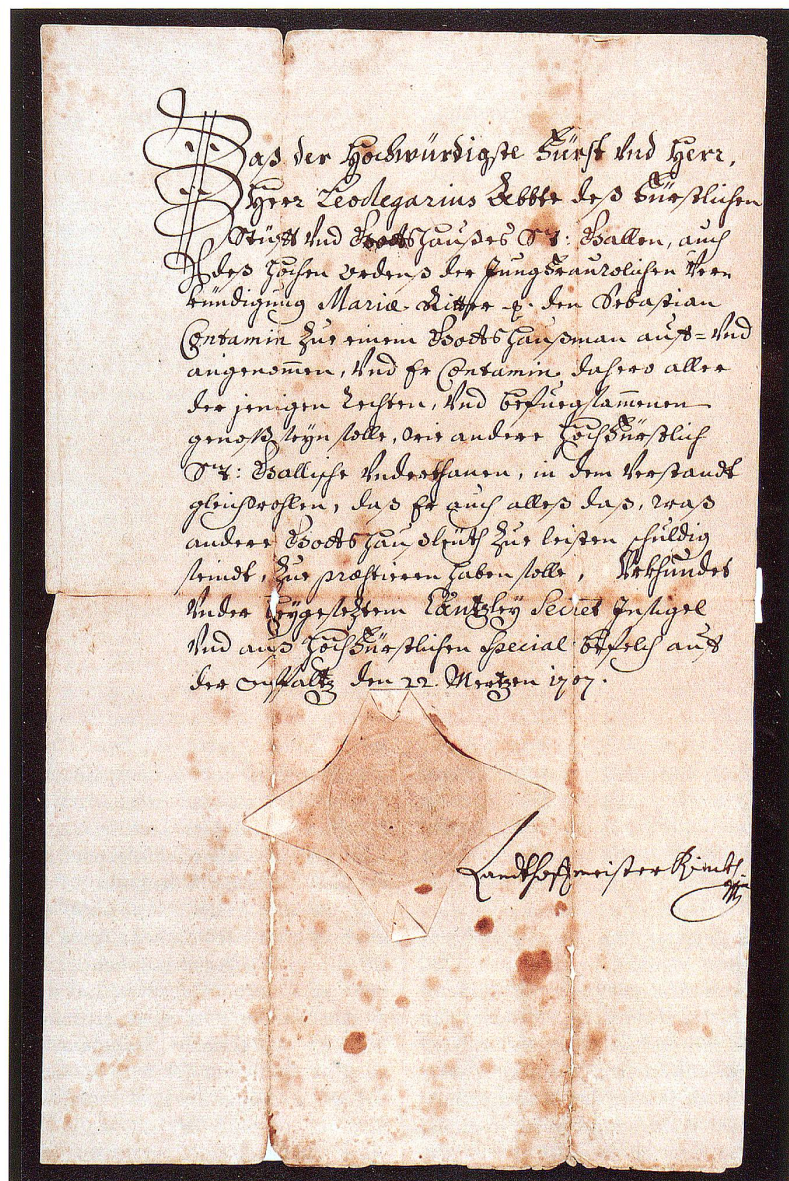 Daß der Hochwürdigste Fürst Und Herr,
Herr Leodegarius Abbte deß Fürstlichen
Stüfft Und Gottshaußes St: Gallen, auch
deß hochen ordenß der Jungfraurolichen Ver=
kündigung Mariæ Ritter &. den Sebastian
Contamin Zue einem Gottshaußman auff= Und
angenommen, Und Er Contamin dahero aller
der jenigen rechten, Und befuegsammenen
genoß seyn solle, wie andere hochfürstlich
St: Gallische Underthanen, in dem Verstandt
gleichwohlen, daß Er auch alleß daß, waß
andere Gottshaußleüth Zue leisten schuldig
seindt, Zue præstieren haben solle, Urkhundes
Under beygesetztem Cantzley Secret Insigel
Und auß hochfürstlichen special befelch auff
der Pfaltz den 22. Mertzen 1707.
Landthoffmeister